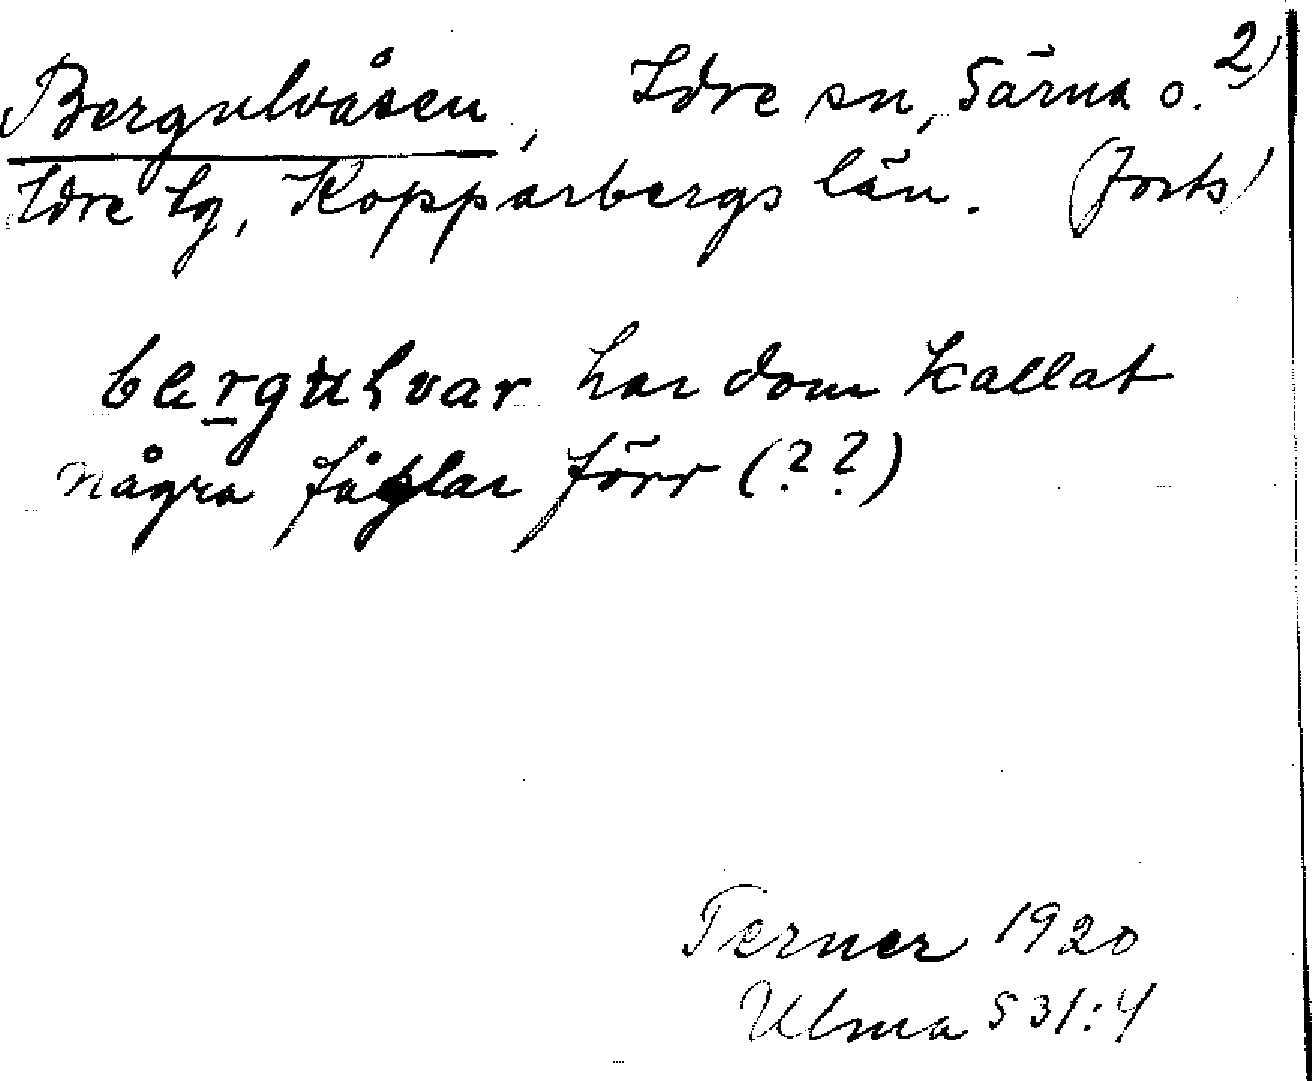 Bergulvåsen, Idre sn, Särna o. 2)
Idre tg, Kopparbergs län. (forts)
bergulvar har dom kallat
några fåglar förr (??)
Terner 1920
Ulma 531:4